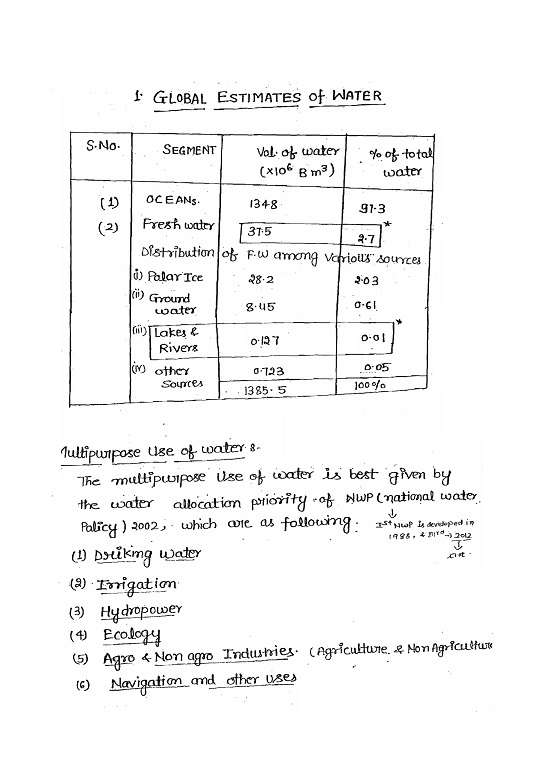 1. GLOBAL ESTIMATES of WATER
S.No. SEGMENT Vol. of water (x10⁶ B m³) % of total water
(1) OCEANs. 1348 97.3
(2) Fresh water 37.5 2.7 *
Distribution of F.W among various sources
(i) Palar Ice 28.2 2.03
(ii) Ground water 8.45 0.61
(iii) Lakes & Rivers 0.127 0.01 *
(iv) other Sources 0.723 0.05
1385.5 100%
Multipurpose Use of water :-
The multipurpose Use of water is best given by
the water allocation priority of NWP (national water
Palicy) 2002, which are as following:
↓
1st NWP Is developed in
1988, & IIIrd → 2012
↓
(1) Drinking water
(2) Irrigation
(3) Hydropower
(4) Ecology
(5) Agro & Non agro Industries. (Agriculture & Non Agriculture
(6) Navigation and other uses